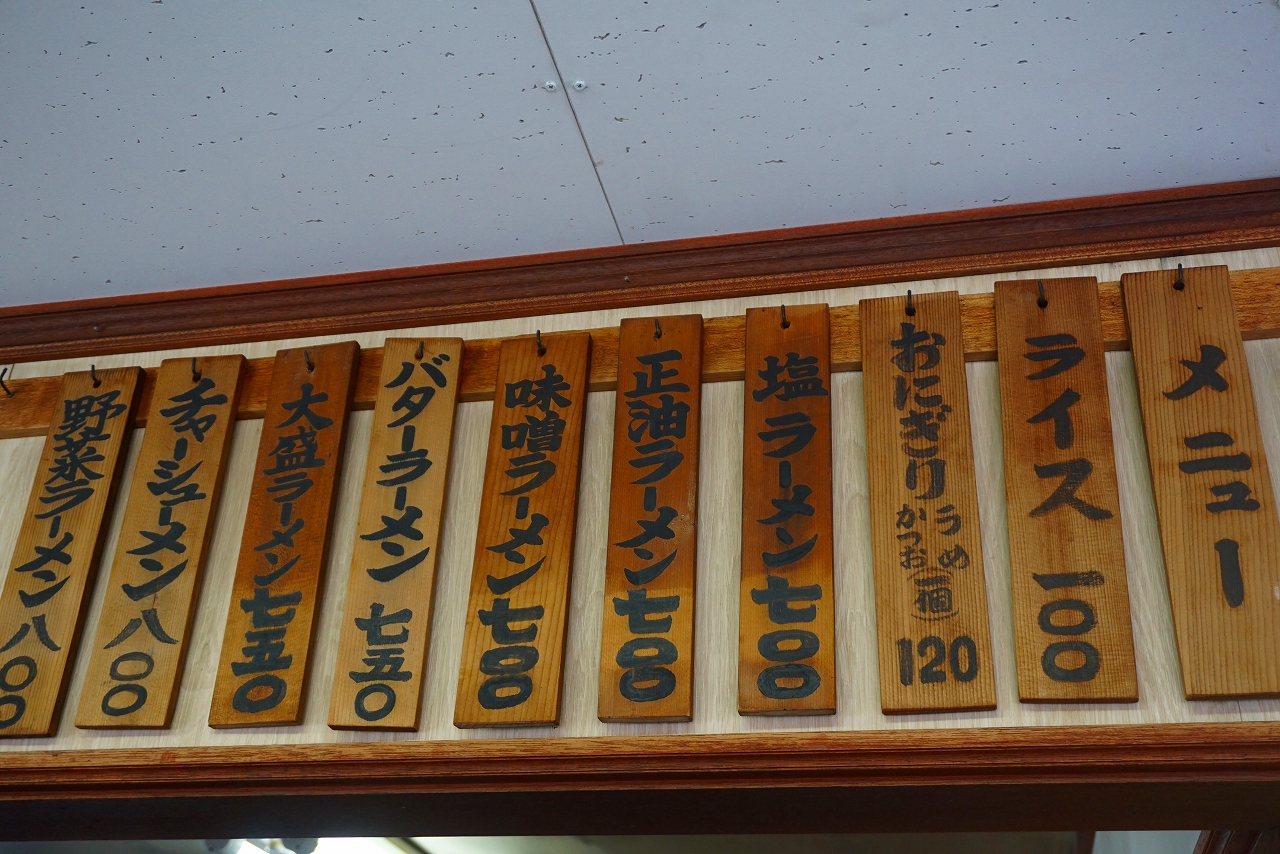 メニュー
ライス 一〇〇
おにぎり うめ かつお (一個) 120
塩ラーメン 七〇〇
正油ラーメン 七〇〇
味噌ラーメン 七〇〇
バターラーメン 七五〇
大盛ラーメン 七五〇
チャーシューメン 八〇〇
野菜ラーメン 八〇〇